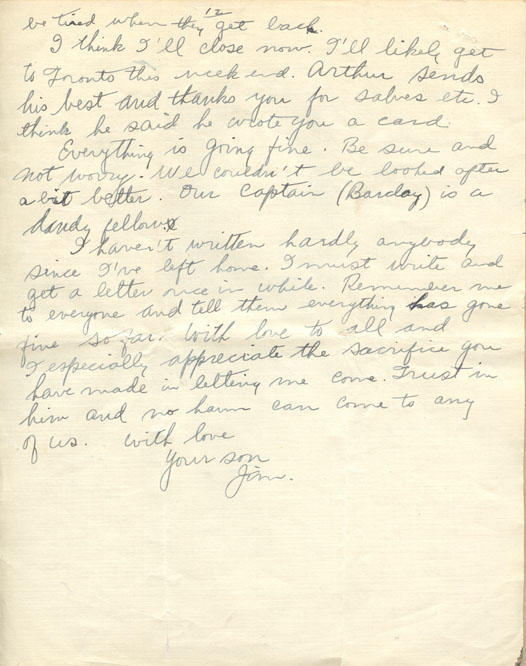 12
be tired when they get back.
I think I'll close now. I'll likely get
to Toronto this week end. Arthur sends
his best and thanks you for salves etc. I
think he said he wrote you a card.
Everything is going fine. Be sure and
not worry. We couldn't be looked after
a bit better. Our Captain (Barclay) is a
dandy fellow.
I haven't written hardly anybody
since I've left home. I must write and
get a letter once in while. Remember me
to everyone and tell them everything has gone
fine so far. With love to all and
I especially appreciate the sacrifice you
have made in letting me come. Trust in
him and no harm can come to any
of us. With love
Your son
Jim.